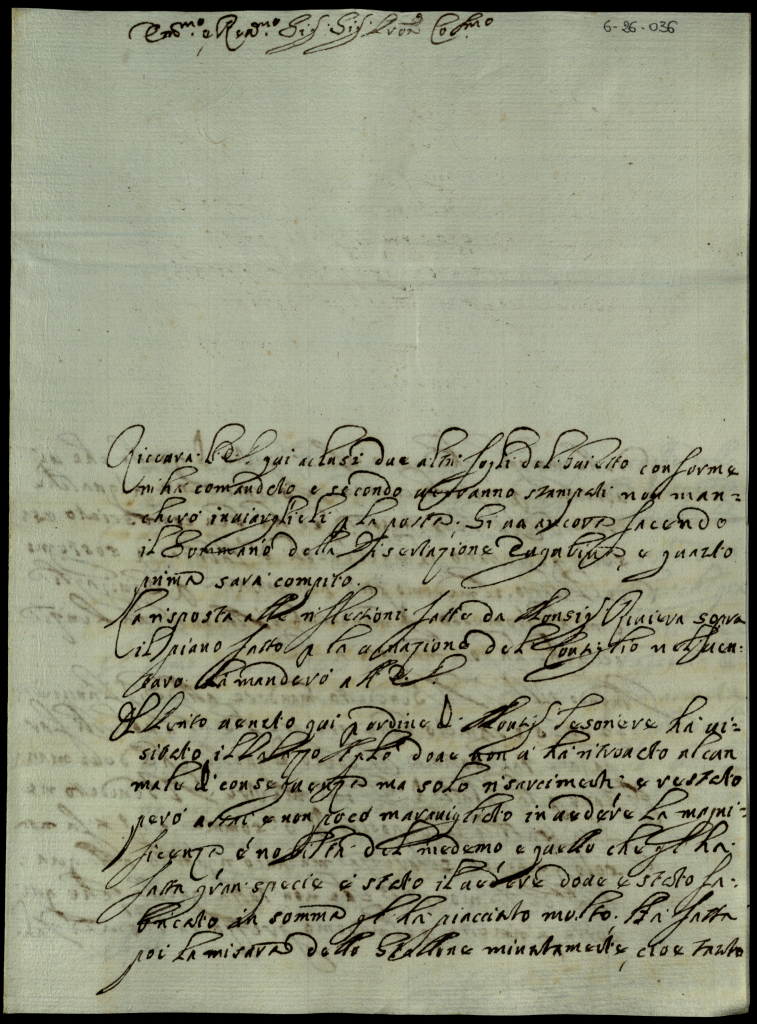 Em.mo e Rev.mo Sig. Sig. Pron. Col.mo
6-26-036
Riceverà V.E. qui aclusi due altri fogli del conforme
mi ha comandato e secondo verranno stampati non man=
cherò inviarglieli p la posta. Si va ancora facendo
il Sommario della Disertazione Eugubina e quanto
prima sarà compito.
La risposta alle riflessioni fatte da Monsig. Riviera sopra
il piano fatto p la erezione del Consiglio nel
la manderò all' E.V.
Il Perito venuto qui p ordine di Monsig. Tesoriere ha vi=
sitato il Palazzo Aplco dove non vi ha ritrovato alcun
male di conseguenza ma solo risarcimenti: e restato
però assai e non poco maravigliato in vedere la magni=
ficenza e nobiltà del medemo e quello che gl' ha
fatta gran specie è stato il vedere dove è stato fa=
bricato in somma gl' ha piacciuto molto. Ha fatta
poi la misura dello Stallone minutamente, cioè tanto